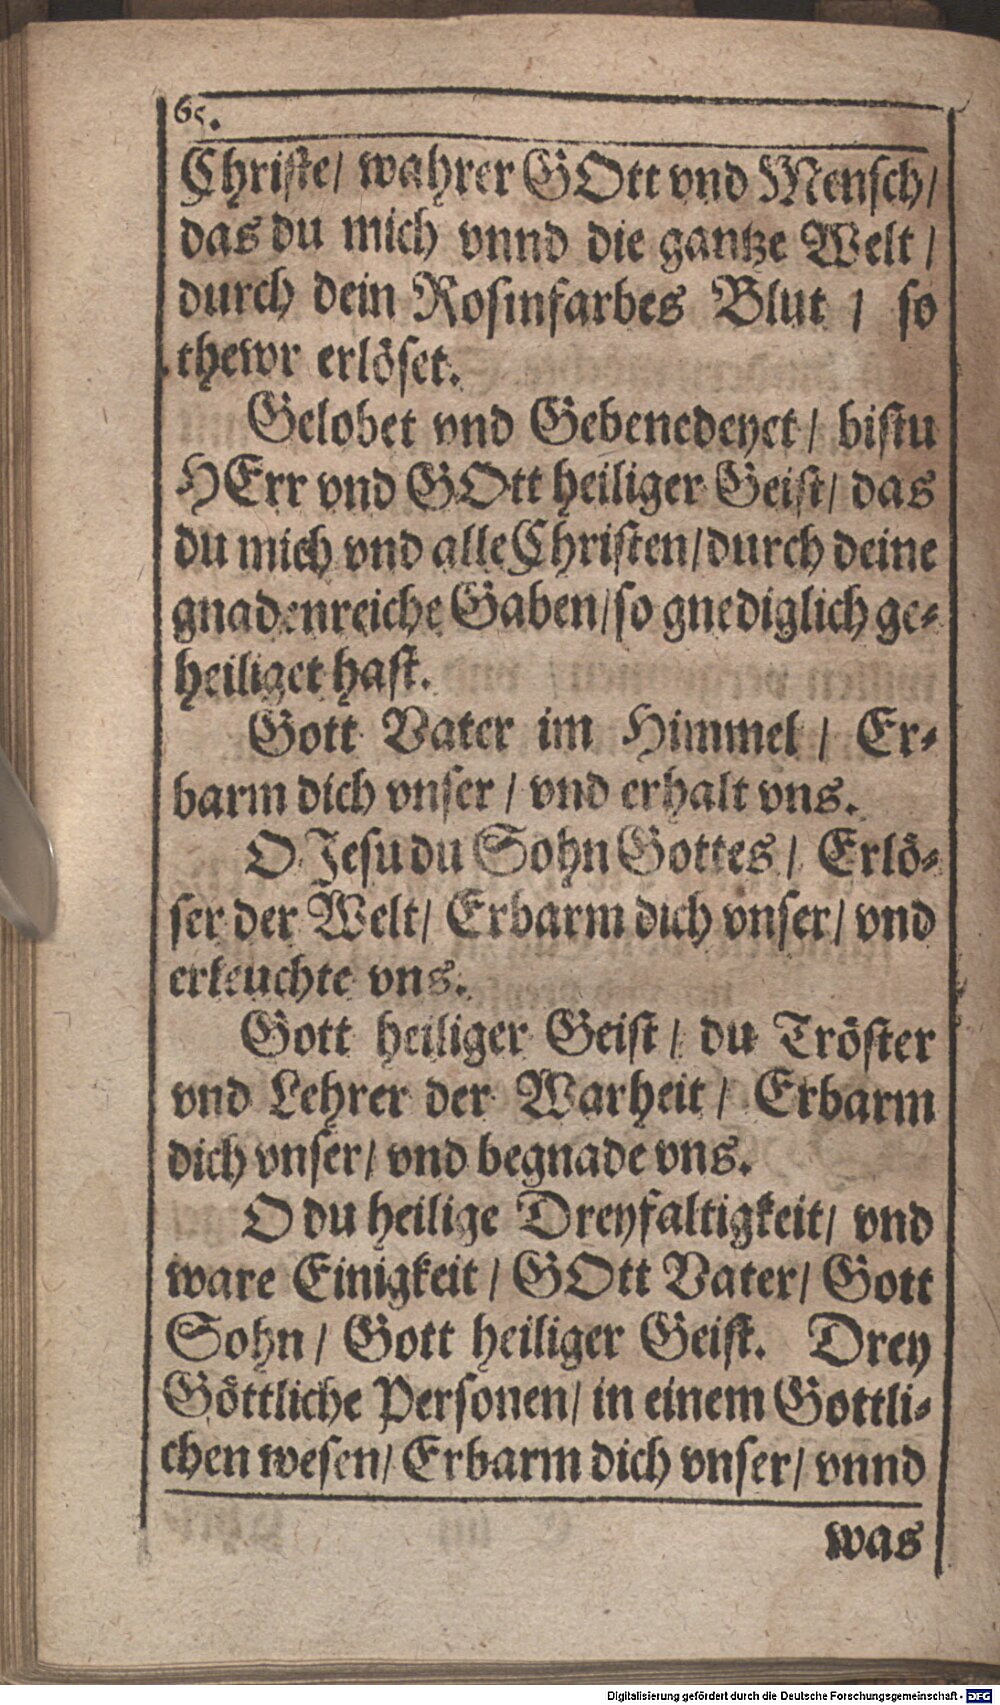 65.
Christe/ wahrer GOtt vnd Mensch/
das du mich vnnd die gantze Welt /
durch dein Rosinfarbes Blut / so
thewr erlöset.
Gelobet vnd Gebenedeyet / bistu
HErr vnd GOtt heiliger Geist/ das
du mich vnd alle Christen/ durch deine
gnadenreiche Gaben/ so gnediglich ge-
heiliget hast.
Gott Vater im Himmel / Er-
barm dich vnser / vnd erhalt vns.
O Jesu du Sohn Gottes / Erlö-
ser der Welt/ Erbarm dich vnser/ vnd
erleuchte vns.
Gott heiliger Geist / du Tröster
vnd Lehrer der Warheit / Erbarm
dich vnser/ vnd begnade vns.
O du heilige Dreyfaltigkeit/ vnd
ware Einigkeit / GOtt Vater/ Gott
Sohn / Gott heiliger Geist. Drey
Göttliche Personen/ in einem Gottli-
chen wesen/ Erbarm dich vnser/ vnnd
was
Digitalisierung gefördert durch die Deutsche Forschungsgemeinschaft - DFG